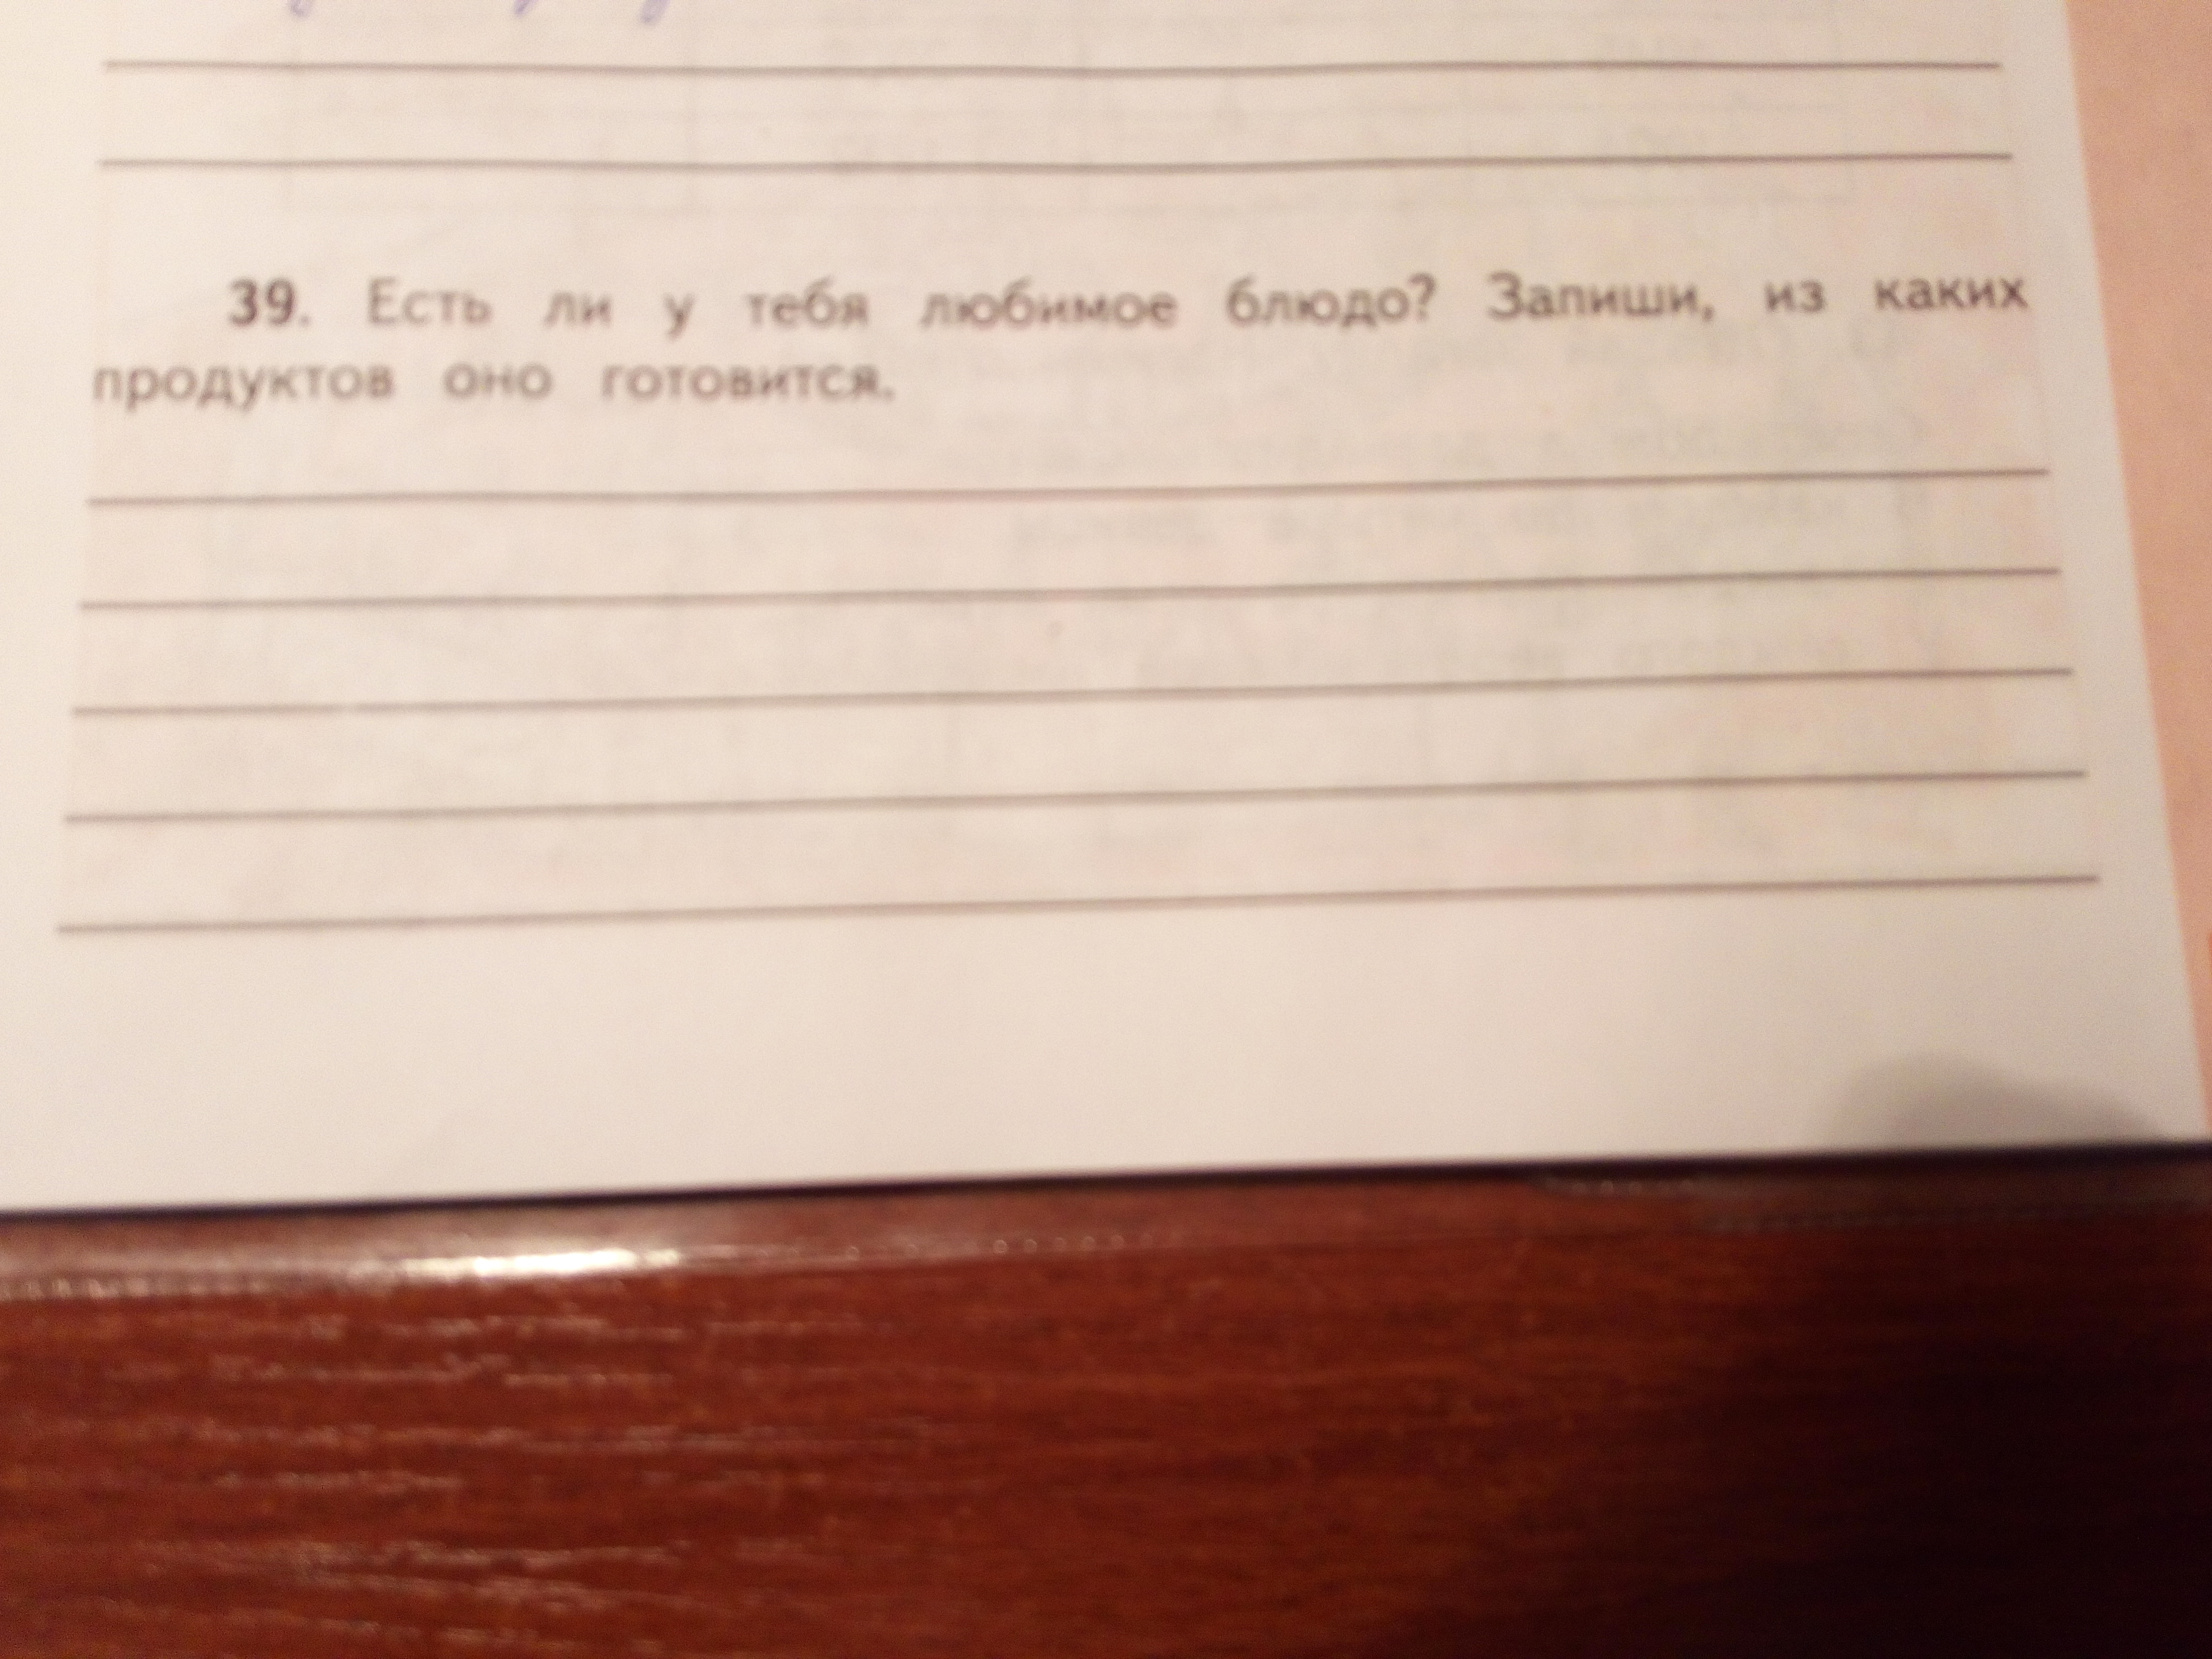 39. Есть ли у тебя любимое блюдо? Запиши, из каких
продуктов оно готовится.